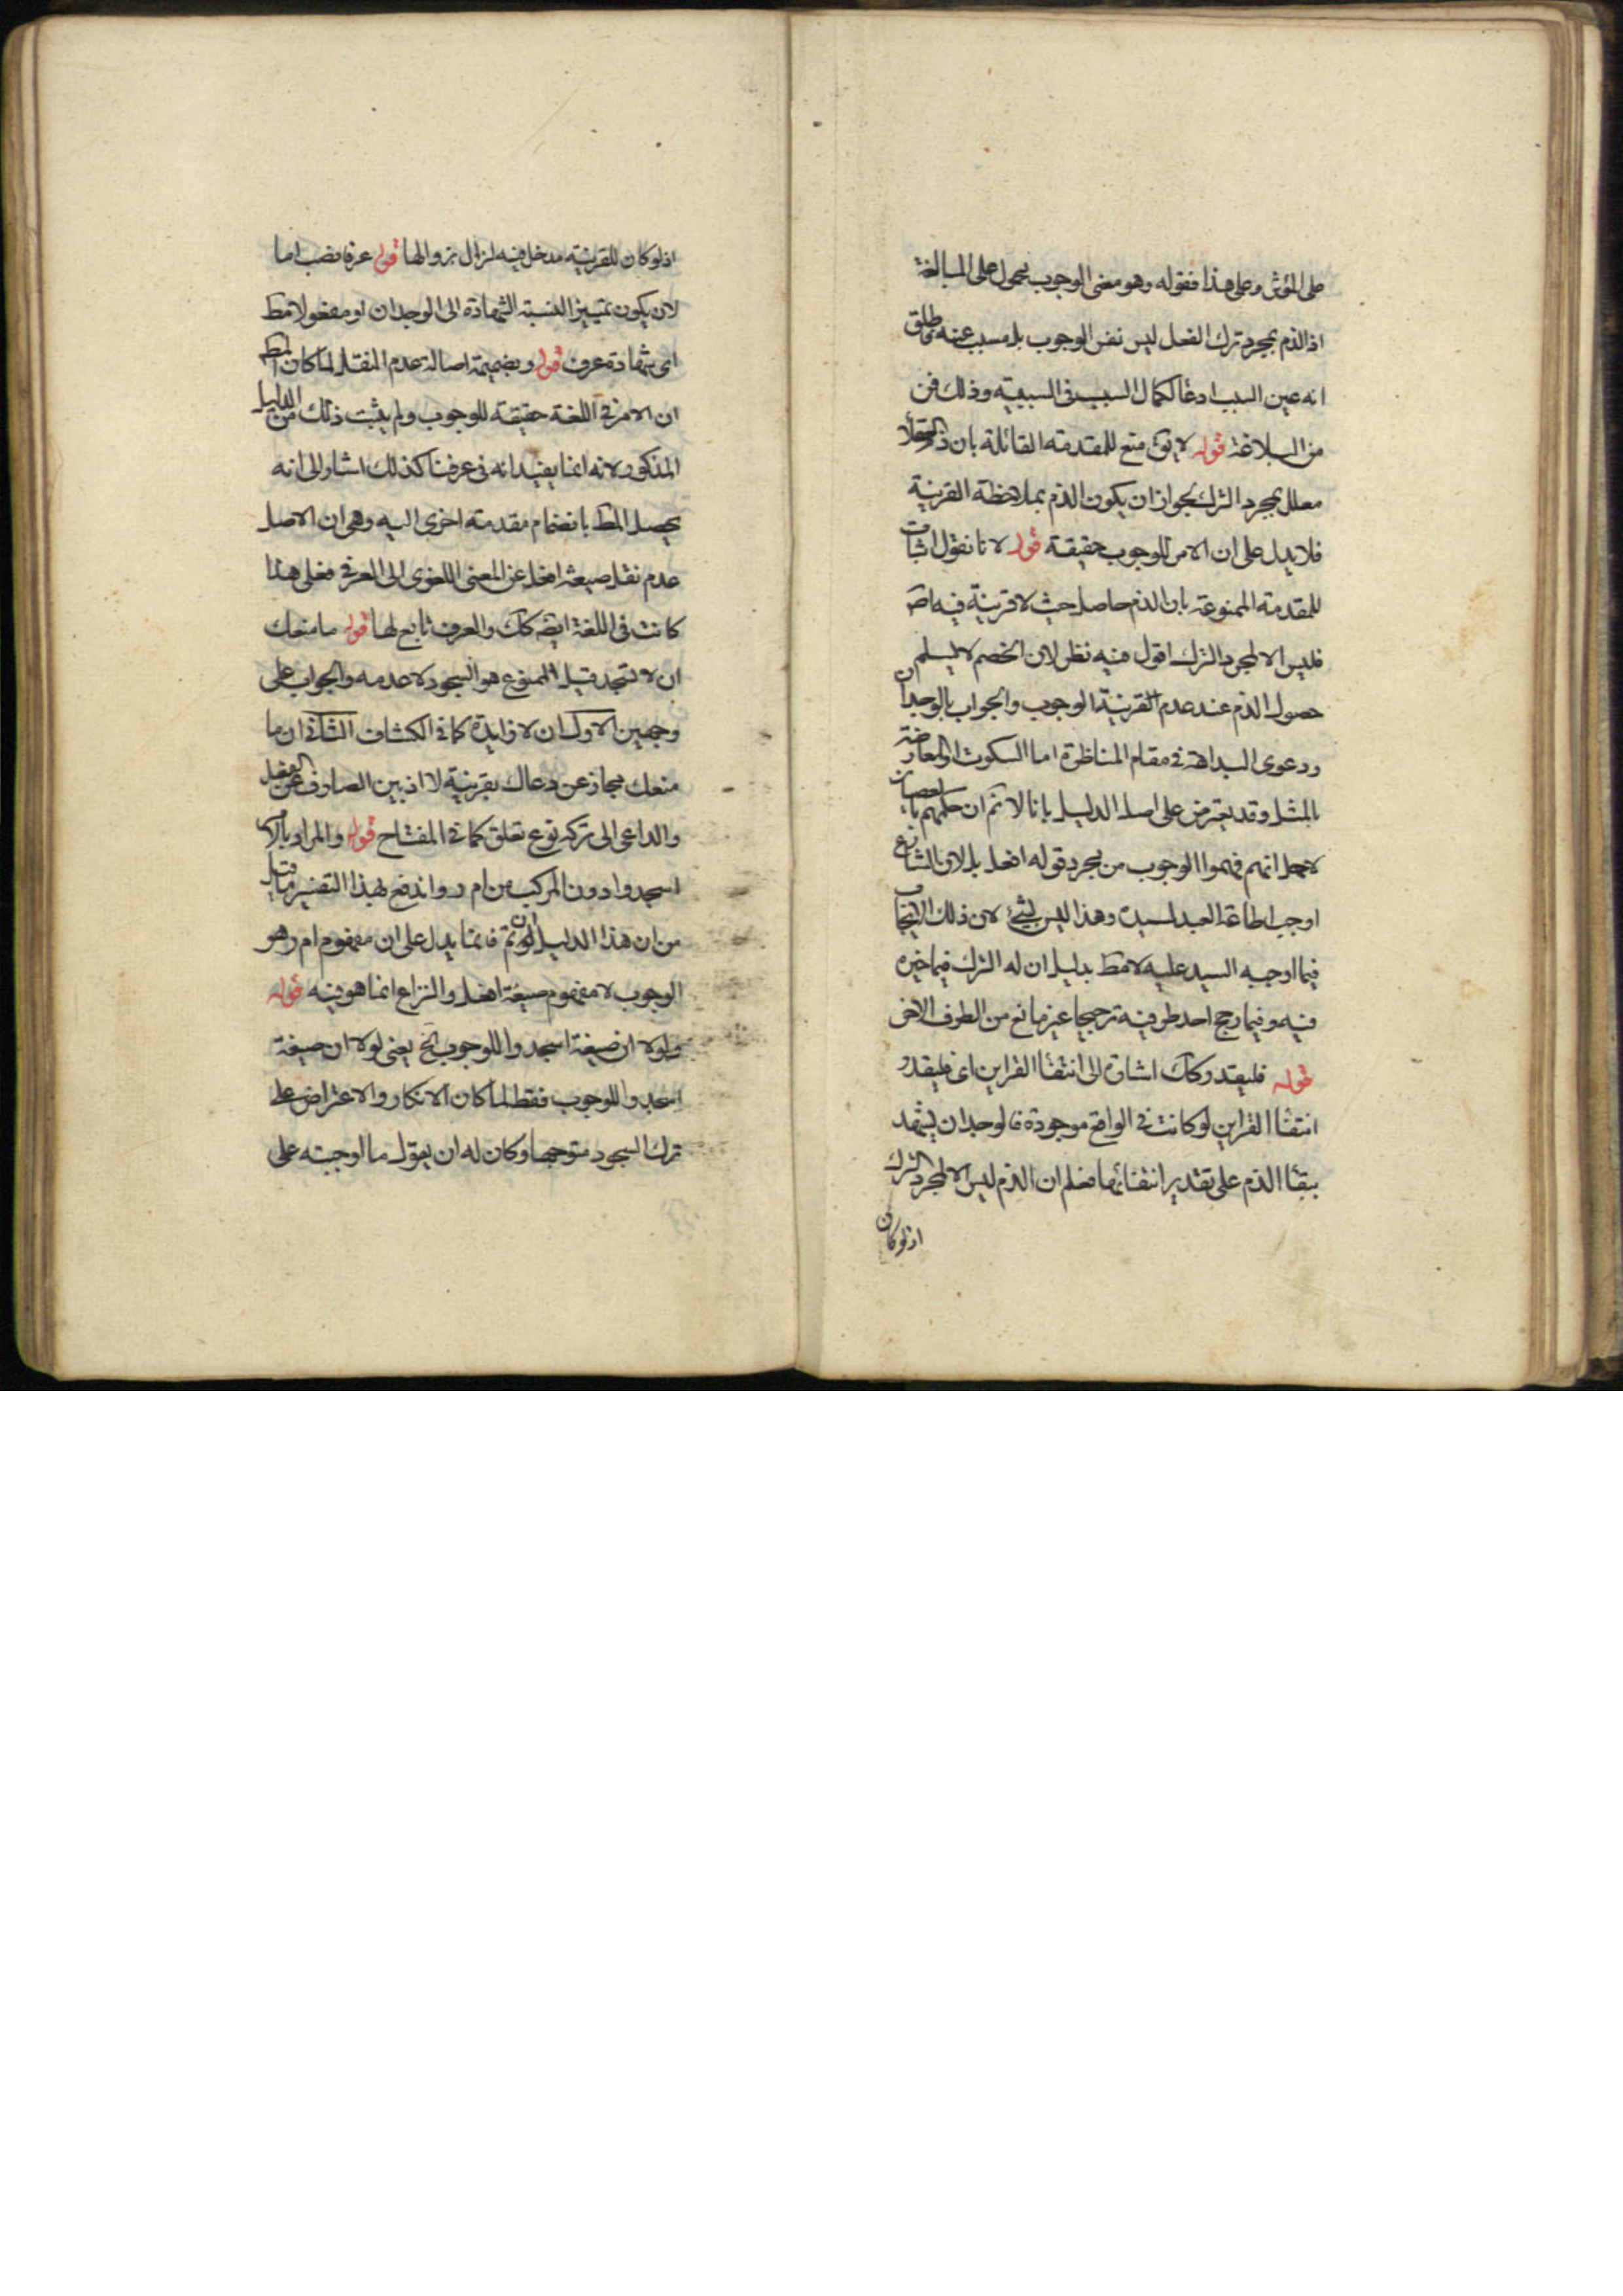 على المؤثر وعلى هذا فقوله وهو معنى الوجوب يحمل على المبالغة
اذ الذم بمجرد ترك الفعل ليس نفس الوجوب بل مسبب عنه فاطلق
انه عين السبب ادعا لكمال السبب فى السببية وذلك فن
من البلاغة قوله لا يق منع للمقدمة القائلة بان ذم العقلا
معلل بمجرد الترك لجواز ان يكون الذم بملاحظة القرينة
فلا يدل على ان الامر للوجوب حقيقة قوله لانا نقول اثبات
للمقدمة الممنوعة بان الذم حاصل حيث لا قرينة فيه اصَ
فليس الا لمجرد الترك اقول فيه نظر لان الخصم لا يسلم
حصول الذم عند عدم القرينة الوجوب والجواب بالوجدان
ودعوى البداهة فى مقام المناظرة اما السكوت او المعارضة
بالمثل وقد يعترض على اصل الدليل بانا لا نم ان حكمهم بالعصيان
لاجل انهم فهموا الوجوب من مجرد قوله افعل بل لان الشارع
اوجب اطاعة العبد لسيده وهذا ليس بشئ لان ذلك الايجاب
فيما اوجبه السيد عليه لا مط بدليل ان له الترك فيما خيره
فيه وفيما رجح احد طرفيه ترجيحا غير مانع من الطرف الاخر
قوله فليقدر كك اشارة الى انتفا القراين اى فليقدر
انتفا القراين لو كانت فى الواقع موجودة فالوجدان يشهد
ببقا الذم على تقدير انتفائها فعلم ان الذم ليس الا لمجرد الترك
اذ لو كان
اذ لو كان للقرينة مدخل فيه لزال بزوالها قوله عرفا نصب اما
لان يكون تمييز النسبة الشهادة الى الوجدان او مفعولا مط
اى شهادة عرف قوله وبضميمة اصالة عدم النقل لما كان المط
ان الامر فى اللغة حقيقة للوجوب ولم يثبت ذلك من الدليل
المذكور لانه انما يفيد انه فى عرفنا كذلك اشار الى انه
يحصل المط بانضمام مقدمة اخرى اليه وهى ان الاصل
عدم نقل صيغة افعل عن المعنى اللغوى الى العرفى فعلى هذا
كانت فى اللغة ايضَ كك والعرف تابع لها قوله ما منعك
ان لا تسجد قيل الممنوع هو السجود لا عدمه والجواب على
وجهين الاول ان لا زايدة كما فى الكشاف الثانى ان ما
منعك مجاز عن دعاك بقرينة لا اذ بين الصارف عن الفعل
والداعى الى تركه نوع تعلق كما فى المفتاح قوله والمراد بالامر
اسجدوا دون المركب من ام ر واندفع بهذا التفسير ما قيل
من ان هذا الدليل لو تم فانما يدل على ان مفهوم ام ر هو
الوجوب لا مفهوم صيغة افعل والنزاع انما هو فيه قوله
ولولا ان صيغة اسجدوا للوجوب الخ يعنى لولا ان صيغة
اسجدوا للوجوب فقط لما كان الانكار والاعتراض على
ترك السجود متوجها وكان له ان يقول ما اوجبته على